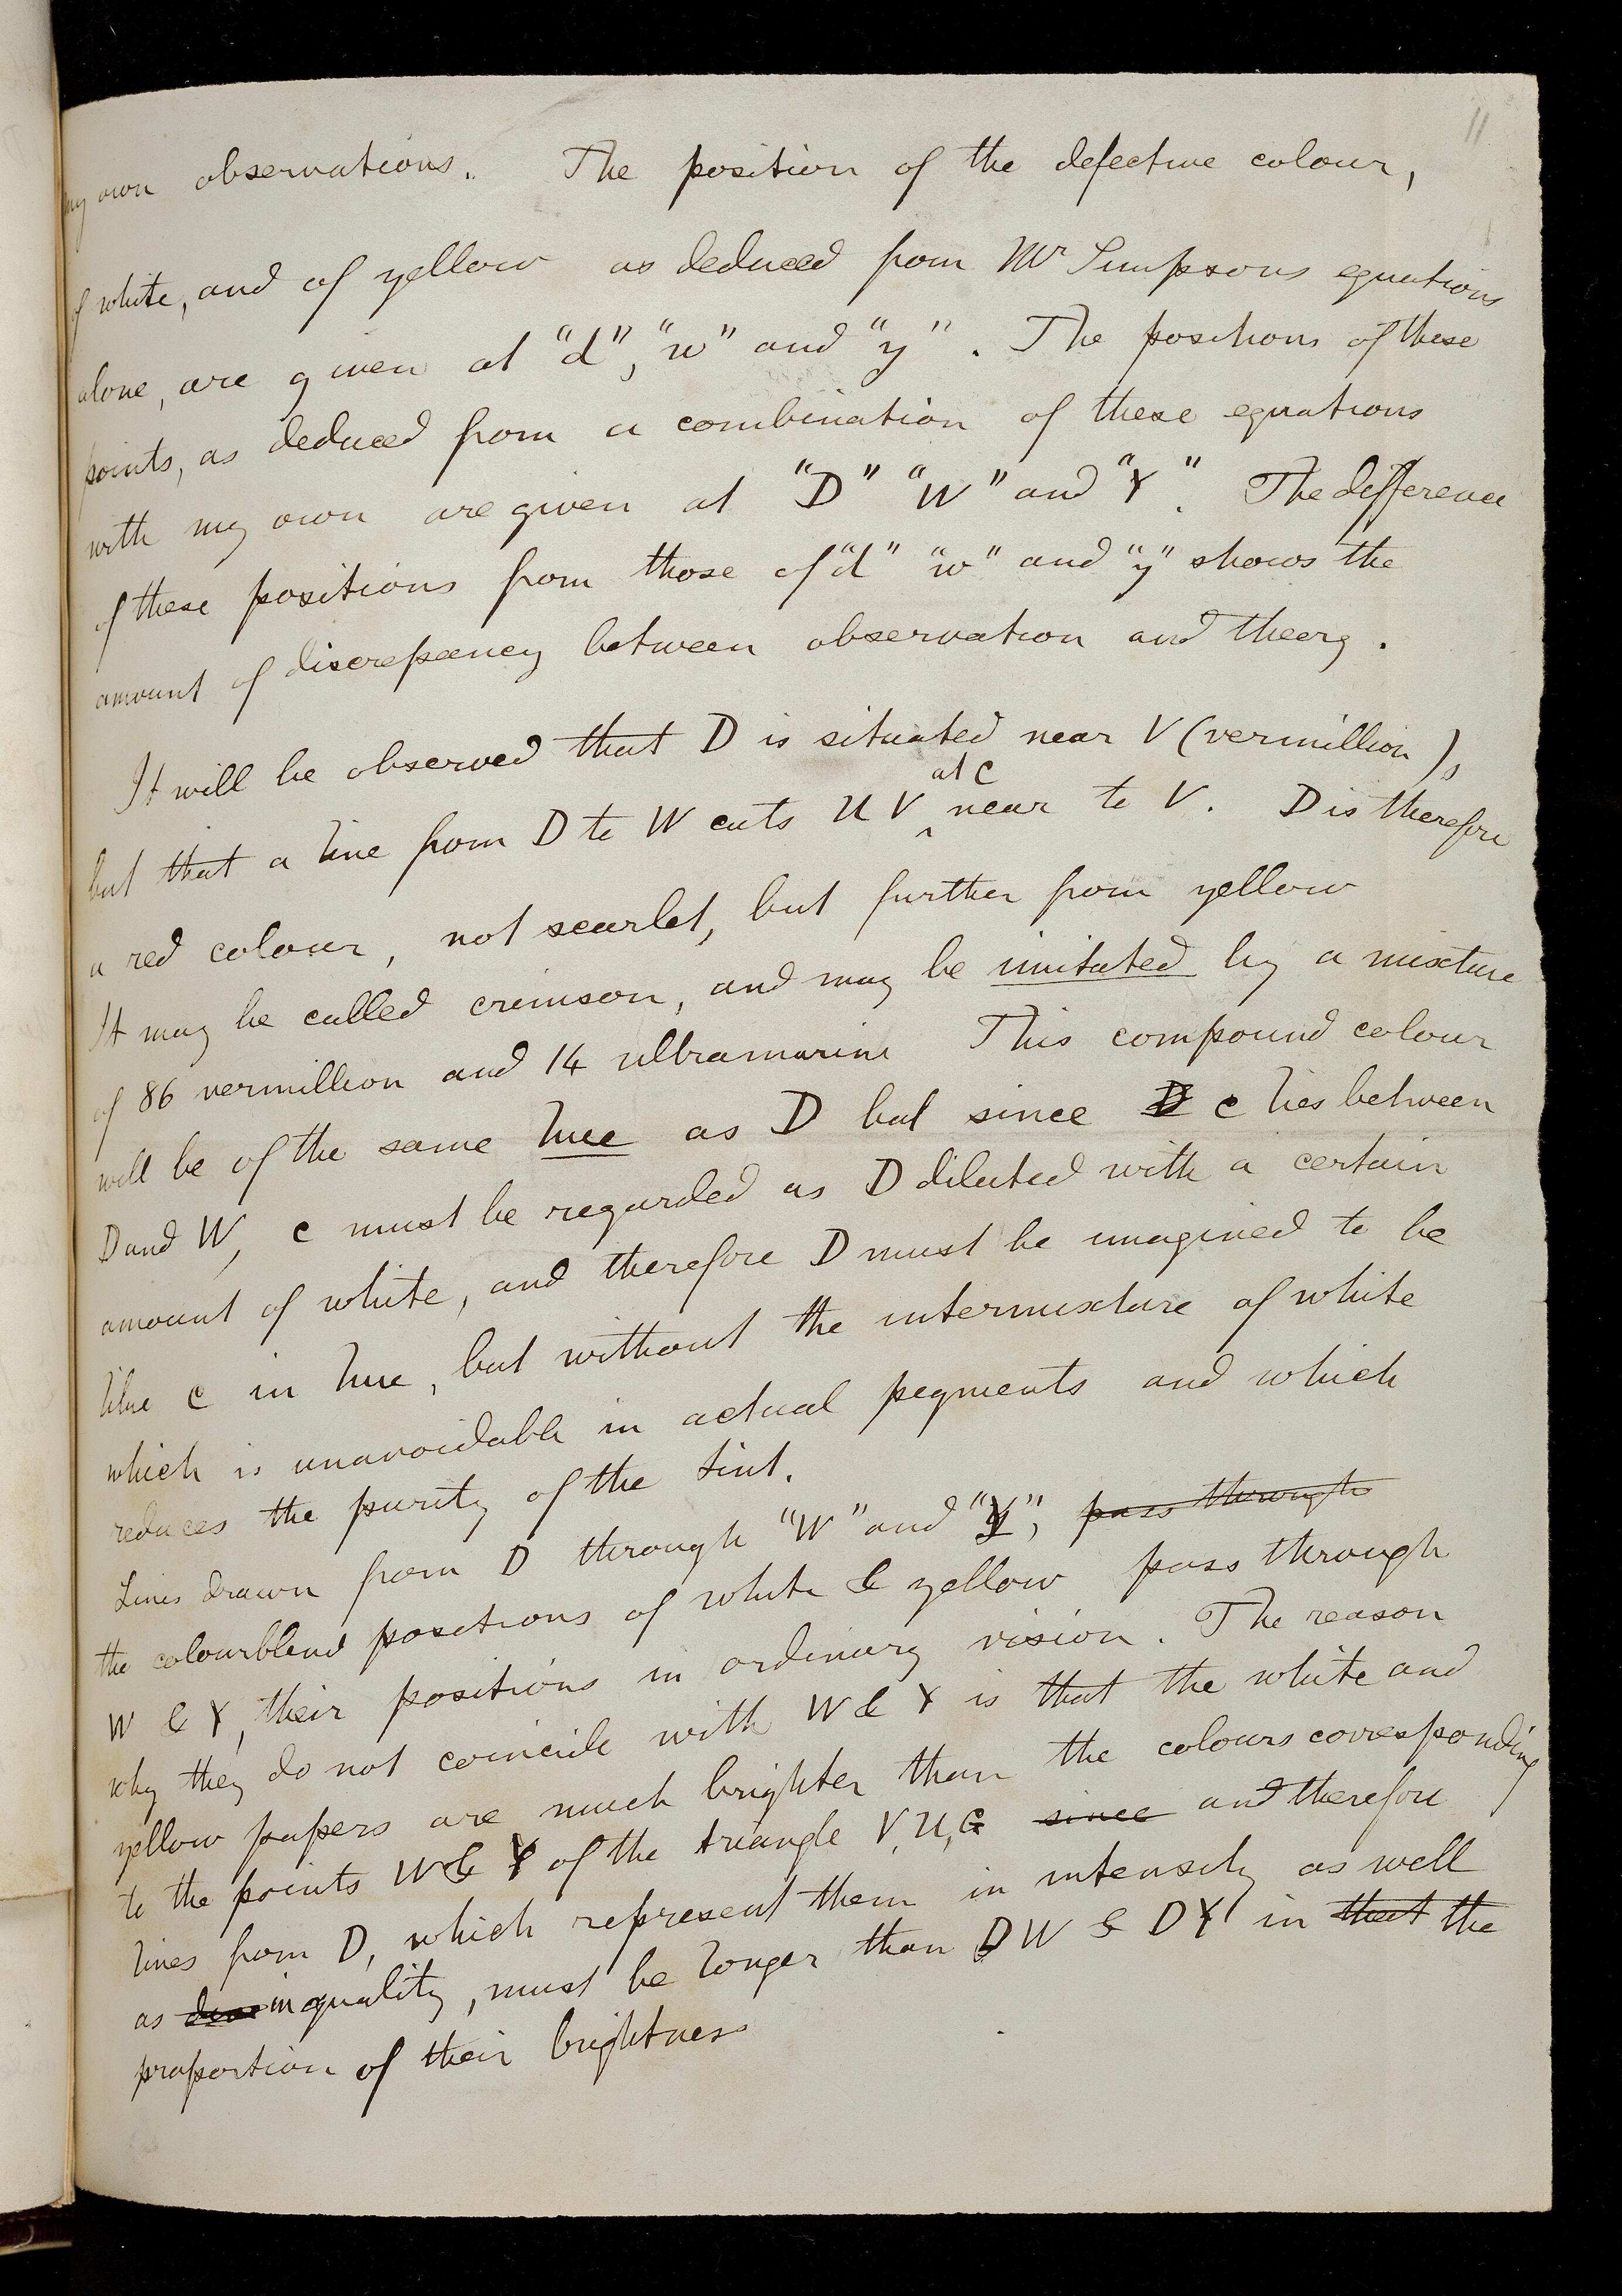 11
my own observations. The position of the defective colour,
of white, and of yellow as deduced from Mr Simpsons equations
alone, are given at "d", "w" and "y". The positions of these
points, as deduced from a combination of these equations
with my own are given at "D" "W" and "Y". The difference
of these positions from those of "d" "w" and "y" shows the
amount of discrepancy between observation and theory.
It will be observed that D is situated near V (vermillion),
but that a line from D to W cuts U V at C near to V. D is therefore
a red colour, not scarlet, but further from yellow
It may be called crimson, and may be imitated by a mixture
of 86 vermillion and 14 ultramarine This compound colour
will be of the same hue as D but since D c lies between
D and W, c must be regarded as D diluted with a certain
amount of white, and therefore D must be imagined to be
like c in hue, but without the intermixture of white
which is unavoidable in actual pegments and which
reduces the purity of the tint.
Lines drawn from D through "W" and "Y", pass through
the colourblind positions of white & yellow pass through
W & Y, their positions in ordinary vision. The reason
why they do not coincide with W & Y is that the white and
yellow papers are much brighter than the colours corresponding
to the points W & Y of the triangle V, U, G since and therefore
lines from D, which represent them in intensity as well
as in quality, must be longer than DW & DY in that the
proportion of their brightness